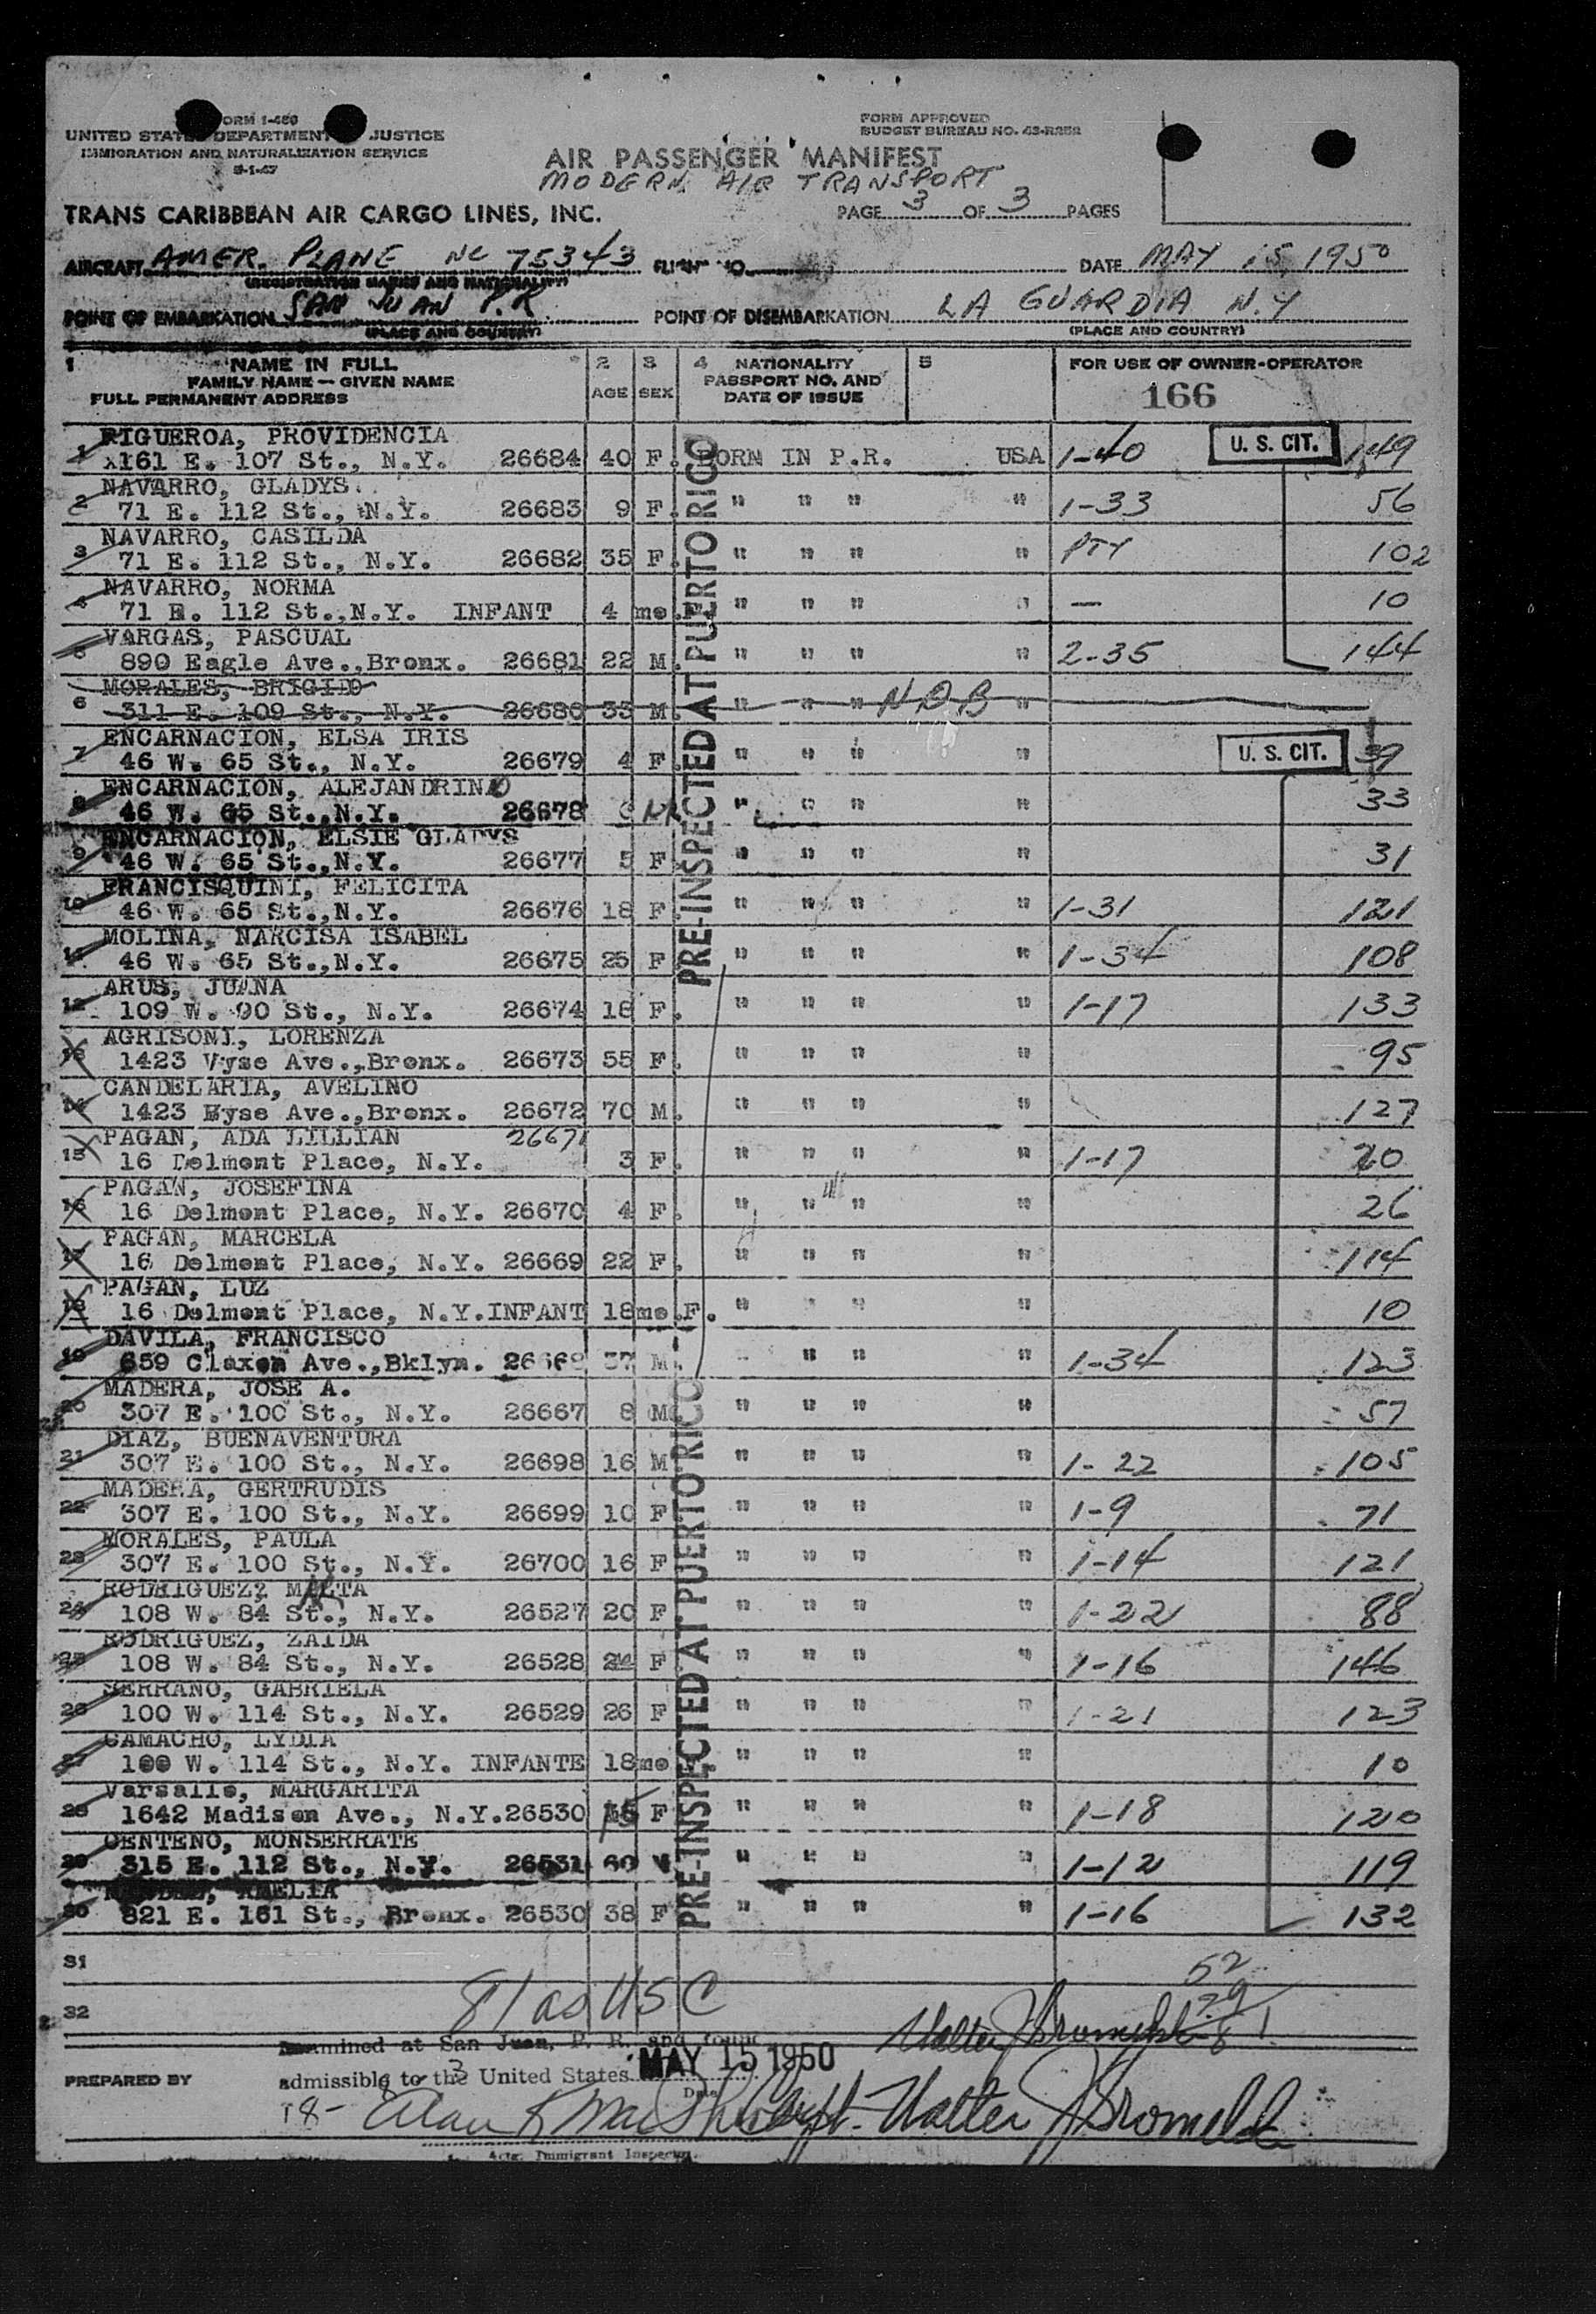 FORM I-466
UNITED STATES DEPARTMENT JUSTICE
IMMIGRATION AND NATURALIZATION SERVICE
FORM APPROVED
BUDGET BUREAU NO.
AIR PASSENGER MANIFEST
MODERN AIR TRANSPORT
TRANS CARIBBEAN AIR CARGO LINES, INC.
PAGE 3 OF 3 PAGES
AIRCRAFT AMER. PLANE NC 75343 FLIGHT NO. DATE MAY 15, 1950
(REGISTRATION MARKS AND NATIONALITY)
POINT OF EMBARKATION SAN JUAN P.R. POINT OF DISEMBARKATION LA GUARDIA N.Y
(PLACE AND COUNTRY) (PLACE AND COUNTRY)
1 NAME IN FULL 2 3 4 NATIONALITY 5 FOR USE OF OWNER-OPERATOR
FAMILY NAME — GIVEN NAME AGE SEX PASSPORT NO. AND
FULL PERMANENT ADDRESS DATE OF ISSUE 166
PRE-INSPECTED AT PUERTO RICO
1 FIGUEROA, PROVIDENCIA
x161 E. 107 St., N.Y. 26684 40 F. BORN IN P.R. USA 1-40 U. S. CIT. 149
2 NAVARRO, GLADYS
71 E. 112 St., N.Y. 26683 9 F. " " " " 1-33 56
3 NAVARRO, CASILDA
71 E. 112 St., N.Y. 26682 35 F. " " " " PTY 102
4 NAVARRO, NORMA
71 E. 112 St.,N.Y. INFANT 4 mo. " " " " — 10
5 VARGAS, PASCUAL
890 Eagle Ave.,Bronx. 26681 22 M. " " " " 2-35 144
6 MORALES, BRIGIDO
311 E. 109 St., N.Y. 26680 33 M. " " " NOB "
7 ENCARNACION, ELSA IRIS
46 W. 65 St., N.Y. 26679 4 F. " " " " U. S. CIT. 39
8 ENCARNACION, ALEJANDRINO
46 W. 65 St.,N.Y. 26678 " " " " 33
9 ENCARNACION, ELSIE GLADYS
46 W. 65 St.,N.Y. 26677 5 F " " " " 31
10 FRANCISQUINI, FELICITA
46 W. 65 St.,N.Y. 26676 18 F " " " " 1-31 121
11 MOLINA, NARCISA ISABEL
46 W. 65 St.,N.Y. 26675 25 F " " " " 1-34 108
12 ARUS, JUANA
109 W. 90 St., N.Y. 26674 18 F. " " " " 1-17 133
13 AGRISONI, LORENZA
1423 Vyse Ave.,Bronx. 26673 55 F. " " " " 95
14 CANDELARIA, AVELINO
1423 Vyse Ave.,Bronx. 26672 70 M. " " " " 127
15 PAGAN, ADA LILLIAN 26671
16 Delmont Place, N.Y. 3 F. " " " " 1-17 20
16 PAGAN, JOSEFINA
16 Delmont Place, N.Y. 26670 4 F. " " " " 26
17 PAGAN, MARCELA
16 Delmont Place, N.Y. 26669 22 F. " " " " 114
18 PAGAN, LUZ
16 Delmont Place, N.Y.INFANT 18mo.F. " " " " 10
19 DAVILA, FRANCISCO
659 Claxon Ave.,Bklyn. 26668 37 M. " " " 1-34 123
PRE-INSPECTED AT PUERTO RICO
20 MADERA, JOSE A.
307 E. 100 St., N.Y. 26667 8 M " " " " 57
21 DIAZ, BUENAVENTURA
307 E. 100 St., N.Y. 26698 16 M " " " " 1-22 105
22 MADERA, GERTRUDIS
307 E. 100 St., N.Y. 26699 10 F " " " " 1-9 71
23 MORALES, PAULA
307 E. 100 St., N.Y. 26700 16 F " " " " 1-14 121
24 RODRIGUEZ,
108 W. 84 St., N.Y. 26527 20 F " " " " 1-22 88
25 RODRIGUEZ, ZAIDA
108 W. 84 St., N.Y. 26528 F " " " " 1-16 146
26 SERRANO, GABRIELA
100 W. 114 St., N.Y. 26529 26 F " " " " 1-21 123
27 CAMACHO, LYDIA
100 W. 114 St., N.Y. INFANTE 18mo " " " " 10
28 Varsallo, MARGARITA
1642 Madison Ave., N.Y.26530 F " " " " 1-18 120
29 CENTENO, MONSERRATE
315 E. 112 St., N.Y. 26531 60 " " " " 1-12 119
30 AMELIA
821 E. 161 St., Bronx. 26530 38 F " " " " 1-16 132
31 52
32 81 as USC 29
81
Examined at San Juan, P. R. and found
admissible to the United States MAY 15 1950
Date
PREPARED BY
Capt. Walter
Actg. Immigrant Inspector.